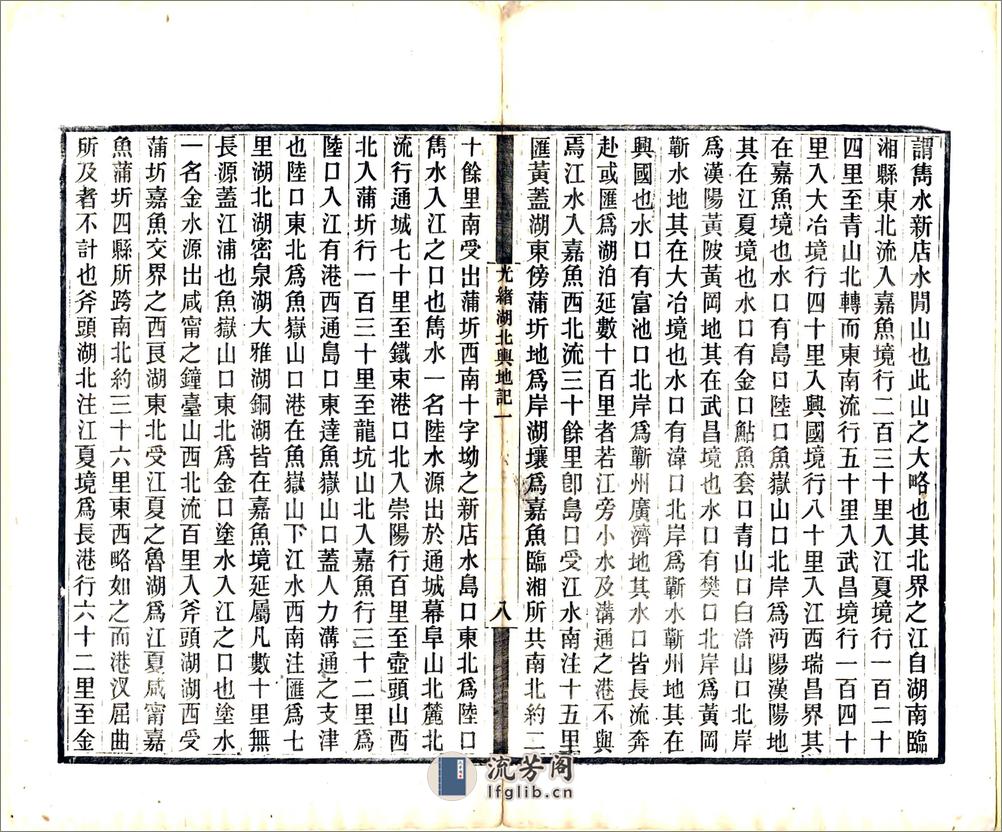 謂雋水新店水閒山也此山之大略也其北界之江自湖南臨
湘縣東北流入嘉魚境行二百三十里入江夏境行一百二十
四里至青山北轉而東南流行五十里入武昌境行一百四十
里入大冶境行四十里入興國境行八十里入江西瑞昌界其
在嘉魚境也水口有島口陸口魚嶽山口北岸爲沔陽漢陽地
其在江夏境也水口有金口鮎魚套口青山口白滸山口北岸
爲漢陽黃陂黃岡地其在武昌境也水口有樊口北岸爲黃岡
蘄水地其在大冶境也水口有湋口北岸爲蘄水蘄州地其在
興國也水口有富池口北岸爲蘄州廣濟地其水口皆長流奔
赴或匯爲湖泊延數十百里者若江旁小水及溝通之港不與
焉江水入嘉魚西北流三十餘里卽島口受江水南注十五里
匯黃蓋湖東傍蒲圻地爲岸湖壤爲嘉魚臨湘所共南北約二
光緒湖北輿地記一
八
十餘里南受出蒲圻西南十字坳之新店水島口東北爲陸口
雋水入江之口也雋水一名陸水源出於通城幕阜山北麓北
流行通城七十里至鐵束港口北入崇陽行百里至壺頭山西
北入蒲圻行一百三十里至龍坑山北入嘉魚行三十二里爲
陸口入江有港西通島口東達魚嶽山口蓋人力溝通之支津
也陸口東北爲魚嶽山口港在魚嶽山下江水西南注匯爲七
里湖北湖密泉湖大雅湖銅湖皆在嘉魚境延屬凡數十里無
長源蓋江浦也魚嶽山口東北爲金口塗水入江之口也塗水
一名金水源出咸甯之鐘臺山西北流百里入斧頭湖湖西受
蒲圻嘉魚交界之西良湖東北受江夏之魯湖爲江夏咸甯嘉
魚蒲圻四縣所跨南北約三十六里東西略如之而港汊屈曲
所及者不計也斧頭湖北注江夏境爲長港行六十二里至金
流芳阁
lfglib.cn